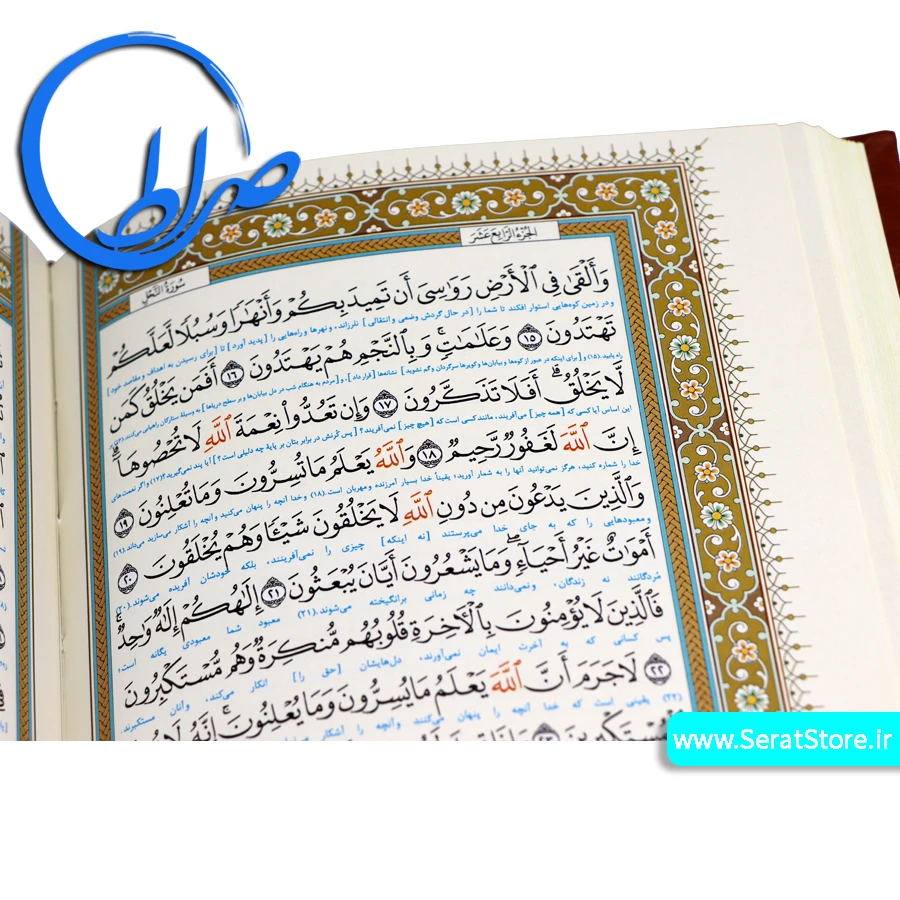 صراط
الجُزءُ الرَّابِعَ عَشَر
سُورَةُ النَّحْلِ
وَأَلْقَىٰ فِي ٱلْأَرْضِ رَوَاسِيَ أَن تَمِيدَ بِكُمْ وَأَنْهَٰرًا وَسُبُلًا لَّعَلَّكُمْ
و در زمین کوه‌هایی استوار افکند تا شما را [ در حال گردش وضعی و انتقالی ] نلرزاند، و نهرها و راه‌هایی را [ پدید آورد ] تا [ برای رسیدن به اهداف و مقاصد خود ]
تَهْتَدُونَ ١٥ وَعَلَٰمَٰتٍ ۚ وَبِٱلنَّجْمِ هُمْ يَهْتَدُونَ ١٦ أَفَمَن يَخْلُقُ كَمَن
راه یابید. (١٥) و [ برای اینکه در عبور از کوه‌ها و بیابان‌ها و کویرها سرگردان وگم نشوید ] نشانه‌ها [ قرار داد ]، و [ مردم به هنگام شب در دل بیابان‌ها و بر سطح دریاها ] به وسیلهٔ ستارگان راهیابی می‌کنند. (١٦)
لَّا يَخْلُقُ ۗ أَفَلَا تَذَكَّرُونَ ١٧ وَإِن تَعُدُّوا۟ نِعْمَةَ ٱللَّهِ لَا تُحْصُوهَآ ۗ
این اساس آیا کسی که [ همه چیز ] می‌آفریند، مانند کسی است که [ هیچ چیز ] نمی‌آفریند؟ [ پس کُرنش در برابر بتان بر پایهٔ چه دلیلی است؟ ] آیا پند نمی‌گیرید؟ (١٧) و اگر نعمت‌های
إِنَّ ٱللَّهَ لَغَفُورٌ رَّحِيمٌ ١٨ وَٱللَّهُ يَعْلَمُ مَا تُسِرُّونَ وَمَا تُعْلِنُونَ ١٩
خدا را شماره کنید، هرگز نمی‌توانید آنها را به شمار آورید؛ یقیناً خدا بسیار آمرزنده و مهربان است. (١٨) و خدا آنچه را پنهان می‌کنید و آنچه را آشکار می‌سازید می‌داند. (١٩)
وَٱلَّذِينَ يَدْعُونَ مِن دُونِ ٱللَّهِ لَا يَخْلُقُونَ شَيْـًٔا وَهُمْ يُخْلَقُونَ ٢٠
و معبودهایی را که به جای خدا می‌پرستند [ نه اینکه ] چیزی را نمی‌آفرینند، بلکه خودشان آفریده می‌شوند. (٢٠)
أَمْوَٰتٌ غَيْرُ أَحْيَآءٍ ۖ وَمَا يَشْعُرُونَ أَيَّانَ يُبْعَثُونَ ٢١ إِلَٰهُكُمْ إِلَٰهٌ وَٰحِدٌ ۚ
مُردگانند نه زندگان، و نمی‌دانند چه زمانی برانگیخته می‌شوند. (٢١) معبود شما معبودی یگانه است؛
فَٱلَّذِينَ لَا يُؤْمِنُونَ بِٱلْءَاخِرَةِ قُلُوبُهُم مُّنكِرَةٌ وَهُم مُّسْتَكْبِرُونَ
پس کسانی که به آخرت ایمان نمی‌آورند، دل‌هایشان [ حق را ] انکار می‌کند، و آنان مستکبرند.
٢٢ لَا جَرَمَ أَنَّ ٱللَّهَ يَعْلَمُ مَا يُسِرُّونَ وَمَا يُعْلِنُونَ ۚ إِنَّهُۥ لَا
(٢٢) یقینی است که خدا آنچه را پنهان می‌کنند و آنچه را آشکار
www.SeratStore.ir